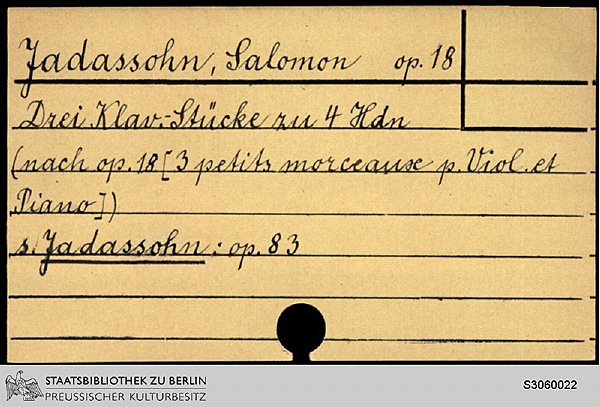 Jadassohn, Salomon op. 18
Drei Klav.-Stücke zu 4 Hdn
(nach op. 18 [3 petits morceaux p. Viol. et
Piano])
s. Jadassohn: op. 83
STAATSBIBLIOTHEK ZU BERLIN
PREUSSISCHER KULTURBESITZ
S3060022